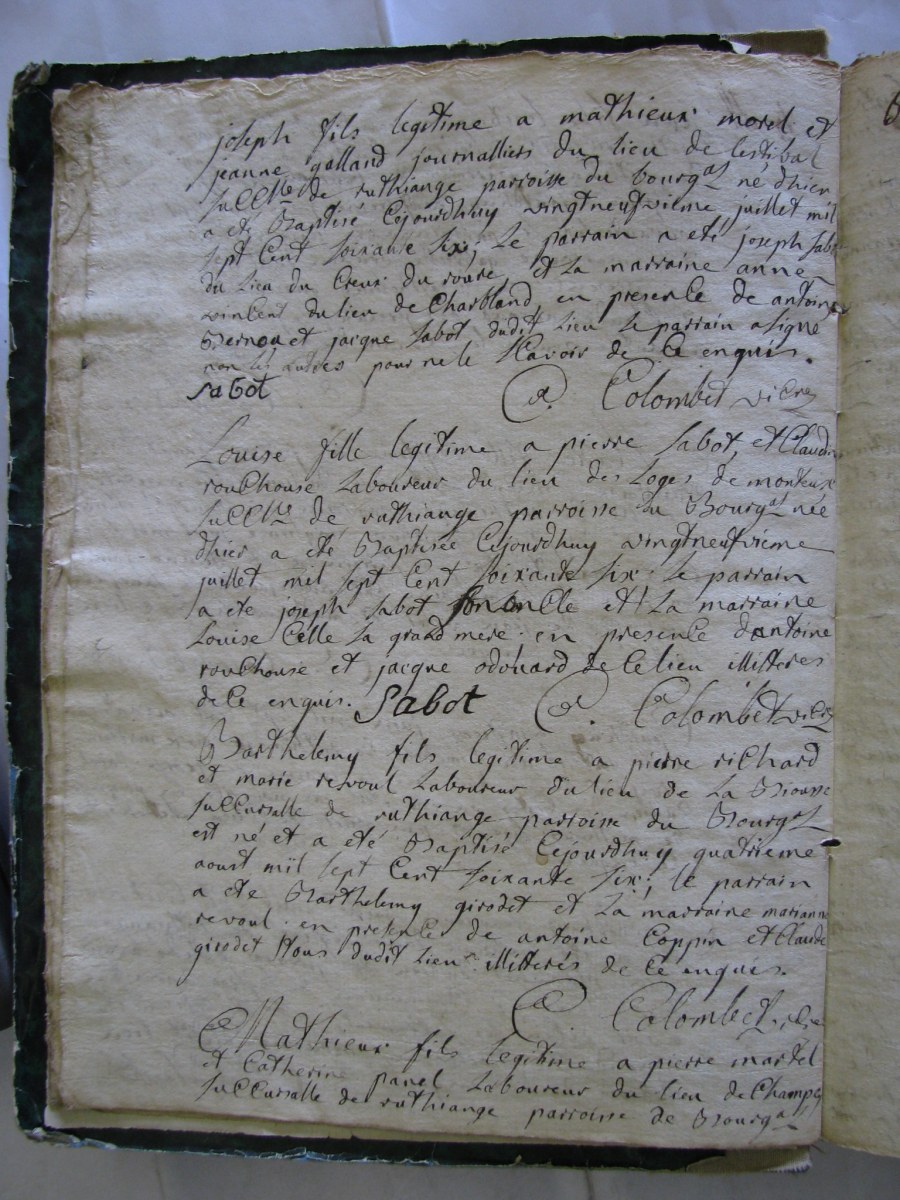 joseph fils legitime a mathieux morel et
jeanne galland journalliers du lieu de lestibal
succlle de ruthiange parroisse du bourgal né dhier
a eté Baptisé Cejourdhuy vingtneufvieme juillet mil
sept Cent soixante six; Le parrain a eté joseph sab
du lieu du Creux du roure et La marraine anne
vincent du lieu de Charbland en presence de antoine
Bernoa et jacque sabot dudit lieu Le parrain a signé
non les autres pour ne le sçavoir de Ce enquis.
sabot Colombet vicre
Louise fille legitime a pierre sabot, et Claudine
rouchouse Laboureur du lieu des Loges de monteux
succlle de ruthiange parroisse du Bourgal née
dhier a eté Baptisée Cejourdhuy vingtneufvieme
juillet mil sept Cent soixante six Le parrain
a ete joseph sabot son oncle et La marraine
Louise Celle La grand mere en presence dantoine
rouchouse et jacque odouard de Ce lieu illitteres
de Ce enquis. Sabot Colombet vicre
Barthelemy fils legitime a pierre richard
et marie revoul Laboureur du lieu de La Brousse
succursalle de ruthiange parroisse du Bourgal
est né et a eté Baptisé Cejourdhuy quatrieme
aoust mil sept Cent soixante six; le parrain
a ete Barthelemy girodet et La marraine marianne
revoul en presence de antoine Coppin et Claude
girodet tous dudit lieu illitterés de Ce enquis.
Colombet vicre
Mathieux fils legitime a pierre martel
et Catherine panel Laboureur du lieu de Champs
succursalle de ruthiange parroisse de Bourgal